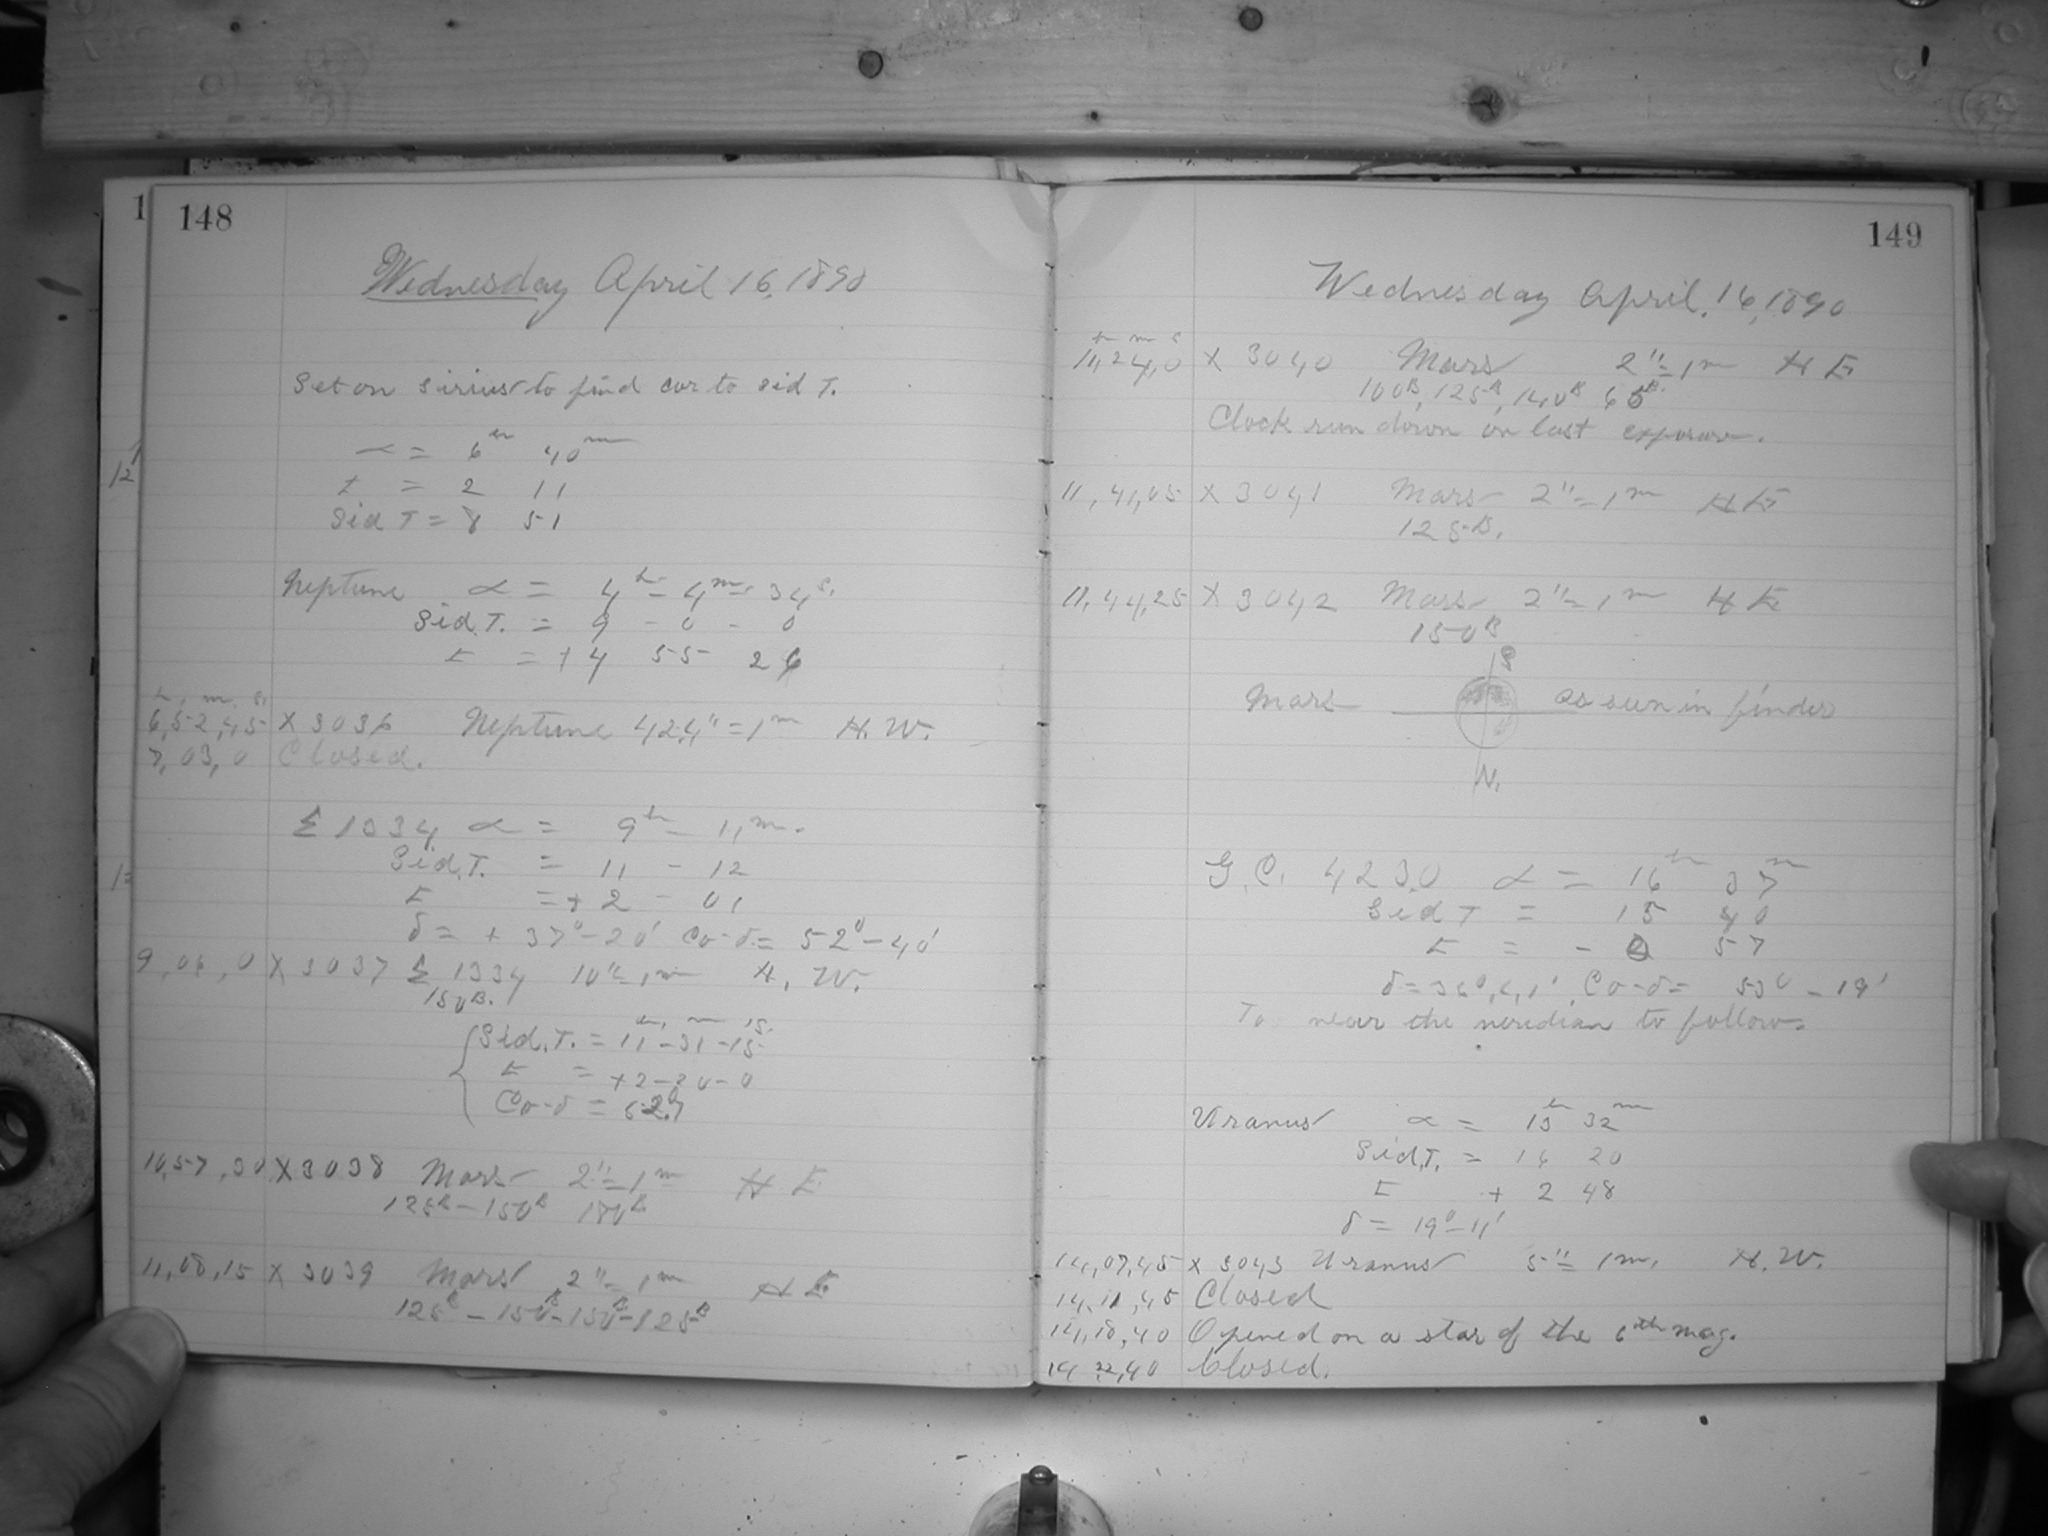 148
Wednesday April 16, 1890
Set on Sirius to find cor to Sid T.
α = 6h 40m
t = 2 11
Sid T = 8 51
Neptune α = 4h - 4m - 34s.
Sid. T. = 9 - 0 - 0
t = + 4 55 26
h, m, s,
6,52,45 X 3036 Neptune 424" = 1m H. W.
7,03,0 Closed.
Σ 1334 α = 9h - 11m.
Sid. T. = 11 - 12
t = + 2 - 01
δ = + 37° - 20' Co-δ = 52° - 40'
9,06,0 X 3037 Σ 1334 10" = 1m H. W.
150B.
Sid. T. = 11h - 31m - 15s.
t = + 2 - 20 - 0
Co-δ = 52.°7
10,57,30 X 3038 Mars 2" = 1m H E
125B - 150B 180B
11,08,15 X 3039 Mars 2" = 1m H E
125B - 150B - 150B - 125B
149
Wednesday April, 16, 1890
h m s
11,24,0 X 3040 Mars 2" = 1m H E
100B, 125B, 140B 65B.
Clock run down on last exposure.
11,41,05 X 3041 Mars 2" = 1m H E
125B.
11,44,25 X 3042 Mars 2" = 1m H E
150B
S
Mars as seen in finder
N.
G. C. 4230 α = 16h 37m
Sid T = 15 40
t = - 0 57
δ = 36°, 41', Co-δ = 53° - 19'
To near the meridian to follow.
Uranus α = 13h 32m
Sid. T. = 16 20
t + 2 48
δ = 19° - 11'
14,07,45 X 3043 Uranus 5" = 1m. H. W.
14,11,45 Closed
14,18,40 Opened on a star of the 6th mag.
14 22,40 Closed.